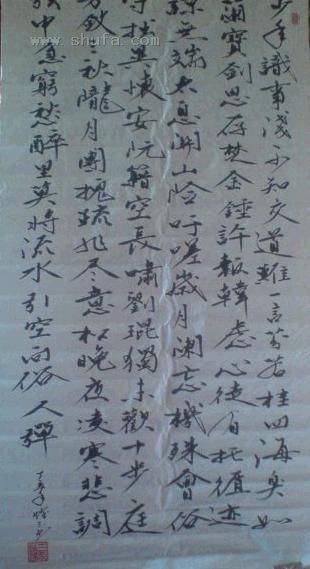 少年識事淺不知交道難一言芬若桂四海臭如
蘭寶劍思存楚金錘許報韓虛心徒有托循迹
諒無端太息關山險吁嗟歲月闌忘機殊會俗
守拙異懷安阮籍空長嘯劉琨獨未歡十步庭
芳斂三秋隴月團槐疏非尽意松晚夜凌寒悲調
弦中急窮愁醉里莫將流水引空向俗人彈
www.shufa.com